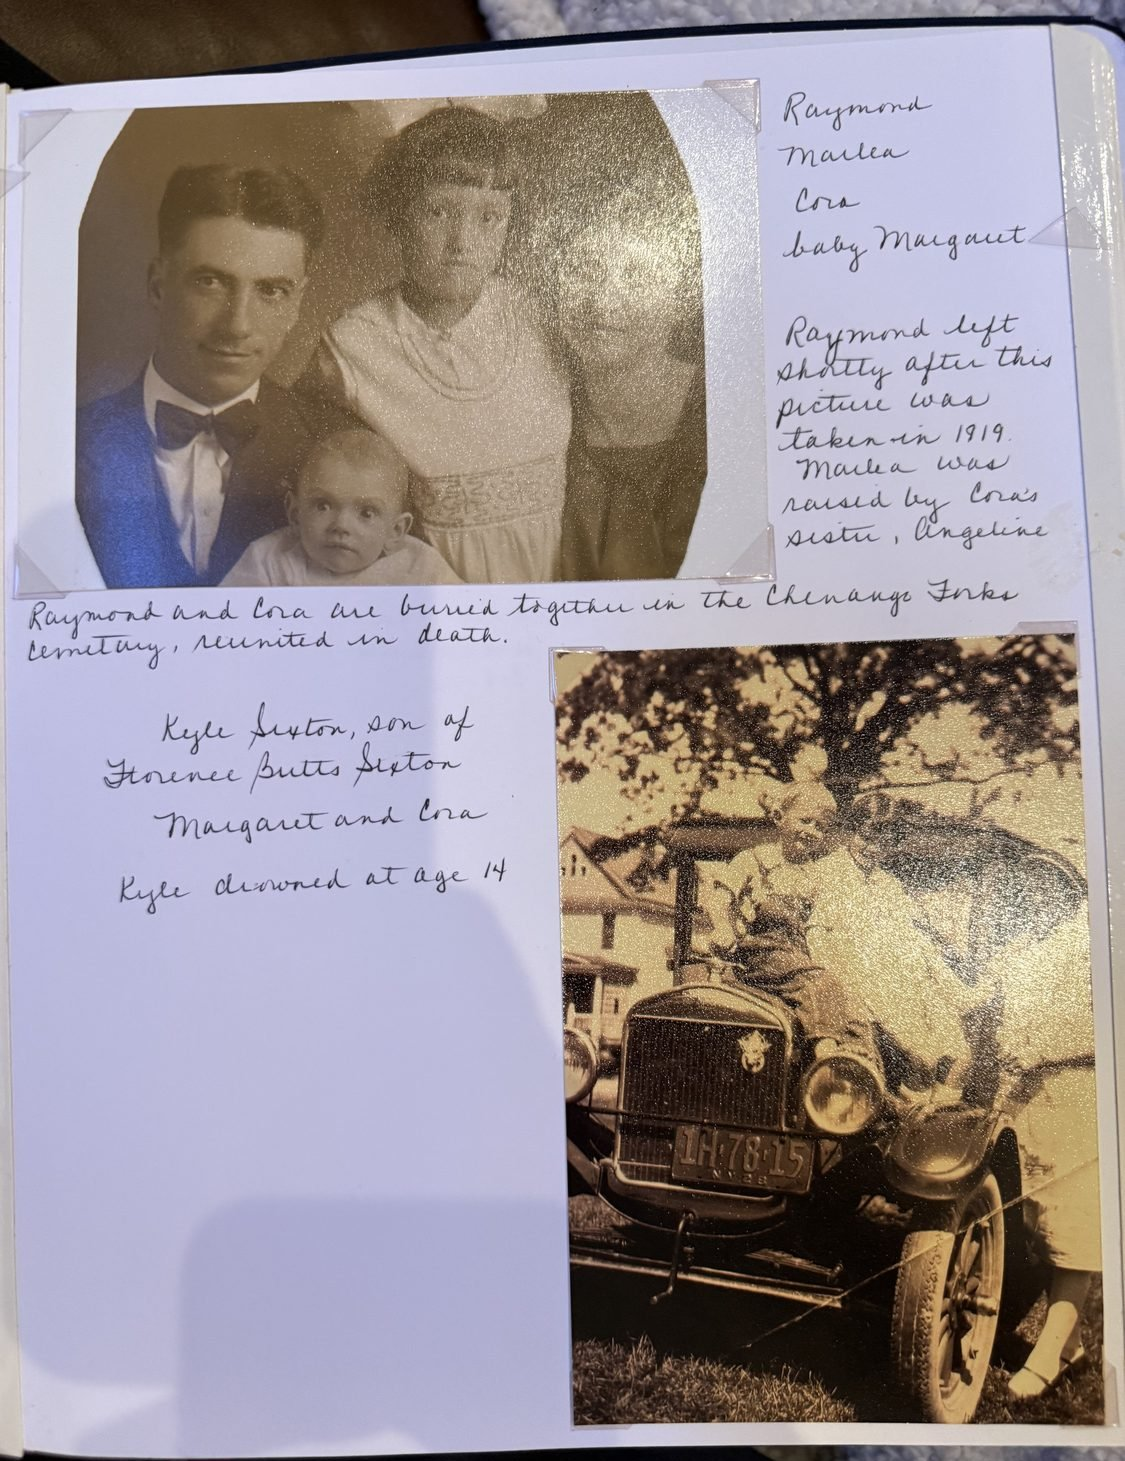 Raymond
Marlea
Cora
baby Margaret
Raymond left
shortly after this
picture was
taken in 1919.
Marlea was
raised by Cora's
sister, Angeline
Raymond and Cora are buried together in the Chenango Forks
cemetary, reunited in death.
Kyle Sexton, son of
Florence Butts Sexton
Margaret and Cora
Kyle drowned at age 14
1H·78·15
NY 28